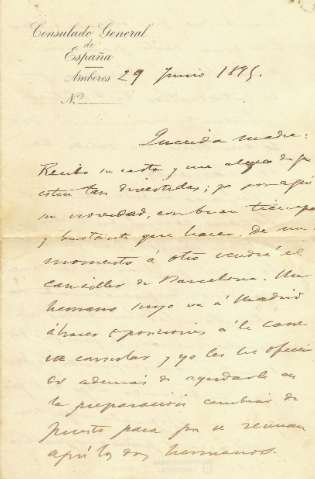 Consulado General
de
España
Amberes 29 Junio 1895.
Nº
Querida madre:
Recibo su carta y me alegro de que
estén tan divertidas; yo por aquí
sin novedad, con buen tiempo
y bastante que hacer. de un
momento á otro vendrá el
canciller de Barcelona. Un
hermano suyo va á Madrid
á hacer oposiciones á la
carrera consular y yo les he
ademas de ayudarle en
la preparación cambiar de
puesto para que se reunan
aquí los dos hermanos.